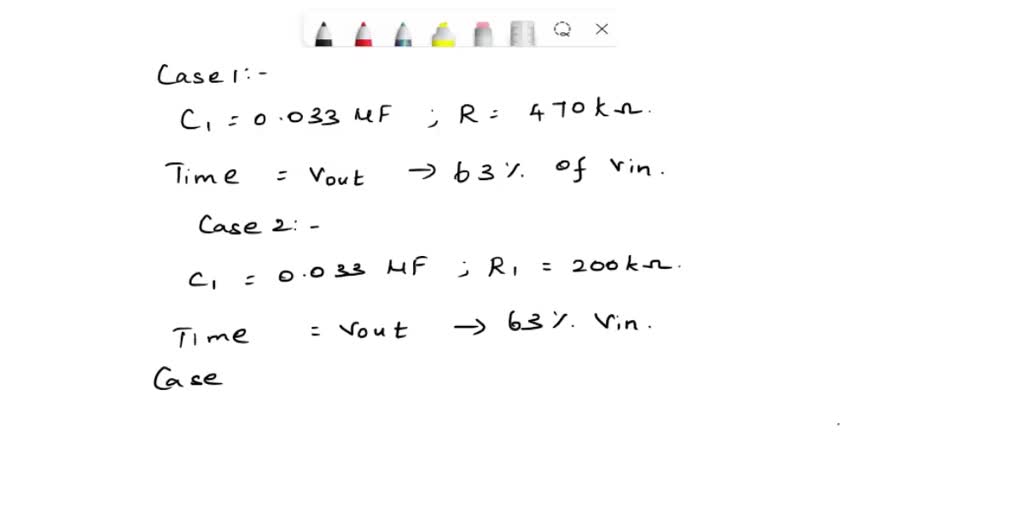 Case 1:-
C1 = 0.033 μF ; R = 470kΩ.
Time = Vout → 63% of Vin.
Case 2:-
C1 = 0.033 μF ; R1 = 200kΩ.
Time = Vout → 63% Vin.
Case